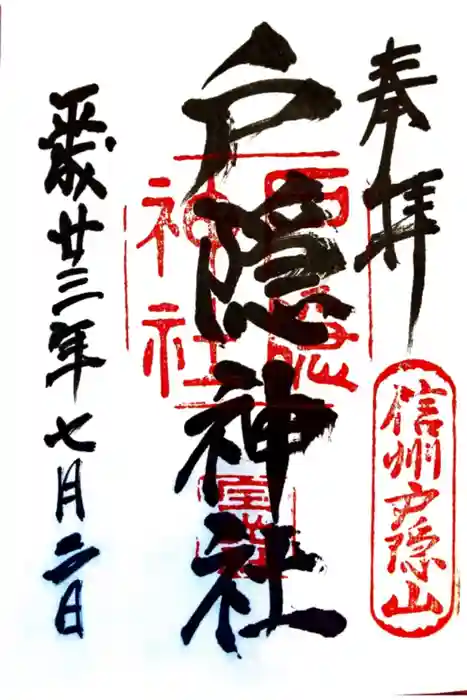 奉拝
信州戸隠山
戸隠神社
戸隠神社
平成廿三年七月二日